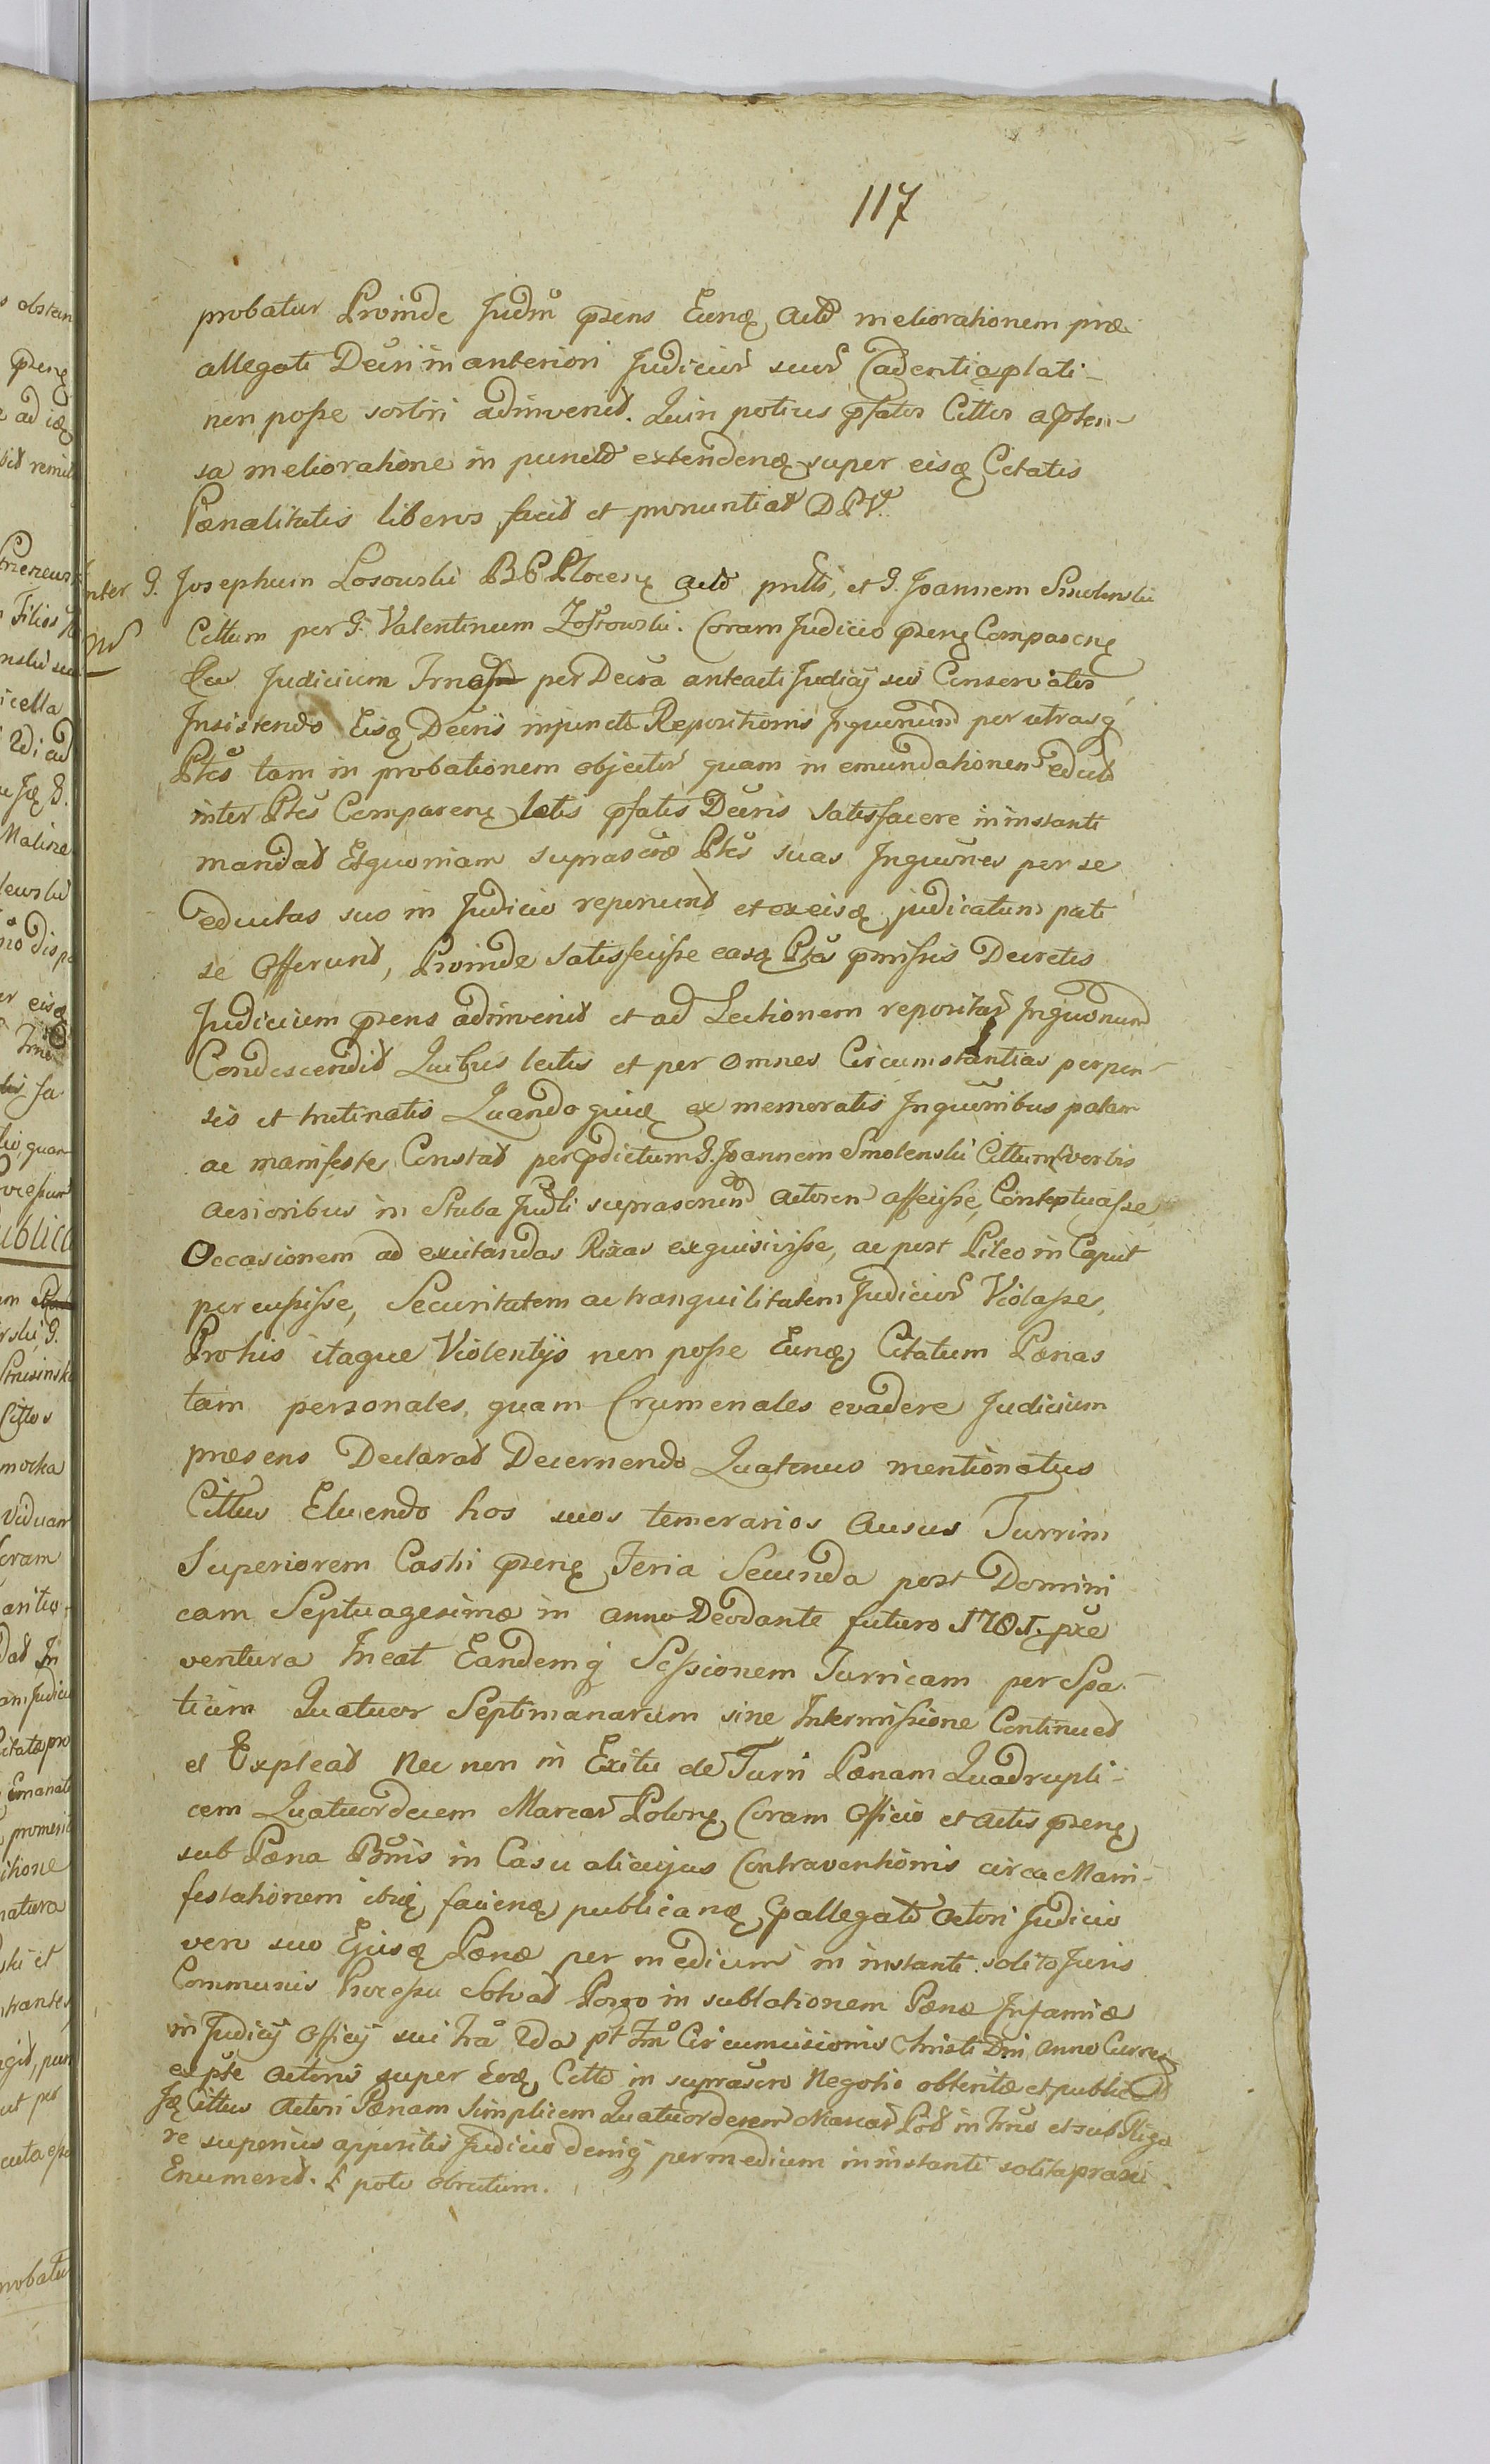 117
probatur Proinde Judm̃ pr̃ens Eunq̃ Actõ meliorationem præ
allegati Decri in anteriori Judicior̃ suor̃ Cadentia plati-
non posse sortiri adinvenit. Quin potius pr̃fatos Cittos a
sa melioratione in punctõ extendenq̃ super eisq̃ Citatis
Pœnalitatis liberos facit et pronuntiat D P V.
Inter G. Josephum Losowski B C Plocenq̃ Actõ et G. Joannem Smolenski
Cittum per G. Valentinum Coram Judicio pr̃enq̃ Comparenq̃
Judicium per Decra anteacti Judicij sui Conservatis
Insistendo Eisq̃ Decris injuncto Repositionis Inquonum̃ per utrasq̃
Ptes tam in probationem objector̃ quam in emundationem educt
inter Ptes Comparenq̃ latis pr̃fatis Decris satisfacere in instanti
mandat Et quoniam suprascrõ Ptes suas Inquõnes per se
eductas suo in Judicio reponunt et ex eisq̃ judicatum pati
se Offerunt, Proinde satisfecisse easq̃ Ptes pr̃missis Decretis
Judicium pr̃ens adinvenit et ad Lectionem repositar̃ Inquõnum
Condescendit Quibus lectis et per omnes Circumstantias perpen-
sis et trutinatis Quandoquiq̃ ex memoratis Inquõnibus palam
ac manifeste Constat per pr̃dictum G. Joannem Smolenski Cittum verbis
acrioribus in Stuba Judli suprasonum̃ Actorem affecisse, Conteptuasse,
Occasionem ad excitandas Rixas exquisivisse, ac post Pileo in Caput
percussisse, Securitatem ac tranquilitatem Judicior̃ Violasse,
Pro his itaque Violentijs non posse Eunq̃ Citatum Pœnas
tam personales, quam Crumenales evadere Judicium
præsens Declarat Decernendo Quatenus mentionatus
Cittus Eluendo hos suos temerarios Ausus Turrim
Superiorem Castri pr̃enq̃ Feria Secunda post Domini
cam Septuagesimæ in anno Deodante futuro 1781. prõ
ventura Ineat Eandemq̃ Sessionem Turricam per Spa-
tium Quatuor Septimanarum sine Intermissione Continuet
et Expleat Nec non in Exitu de Turri Pœnam Quadrupli-
cem Quatuordecem Marcar̃ Polonq̃ Coram Officio et Actis pr̃enq̃
sub Pœna Bnis in Casu alicujus Contraventionis circa Mani-
festationem ibiq̃ facienq̃ publicanq̃ pr̃allegato Actori Judicio
vero suo Ejusq̃ Pœnæ per medium in instanti solito Juris
Communis Processu solvat Porro in sublationem Pœnæ Infamiæ
in Judicij Officij sui fra 2da pt̃ Fm̃ Circumcisionis Christi Dni Anno Currenq̃
ex pte Actoris super Eodq̃ Citto in suprascro Negotio obtentæ et public
Iq̃ Cittus Actori Pœnam simplicem Quatuordecem Marcar̃ Pol in Trno et sub Rigo
re superius appositis Judicio deniq̃ per medium in instanti solita praxi
Enumeret.